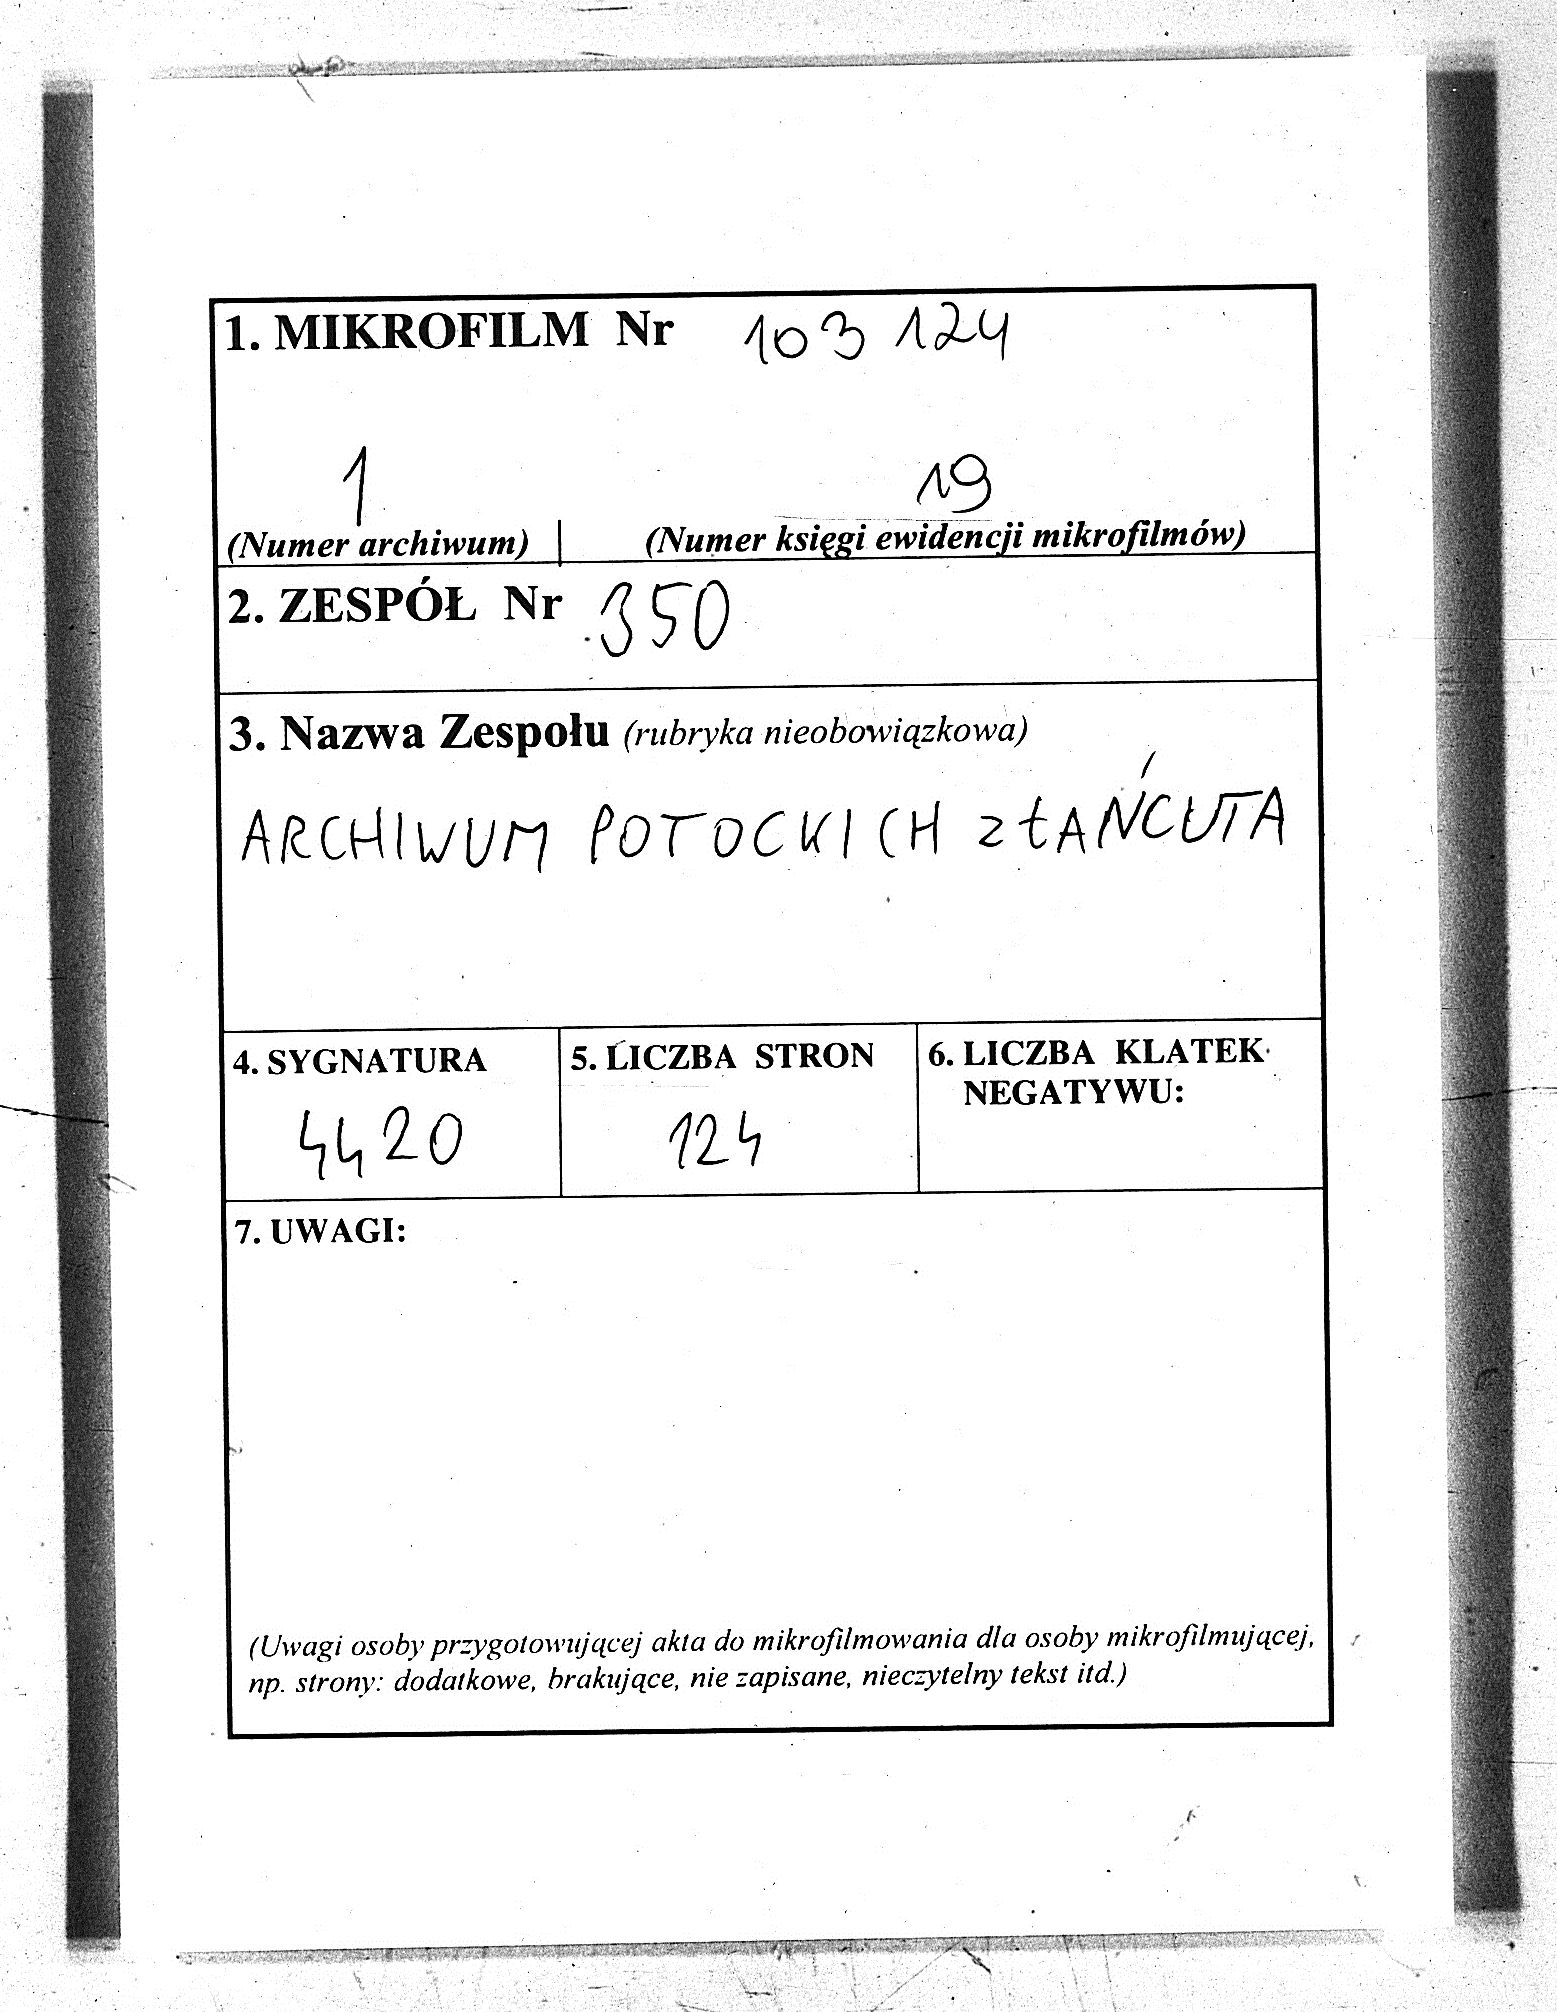 1. MIKROFILM Nr 103 124
1 19
(Numer archiwum) (Numer księgi ewidencji mikrofilmów)
2. ZESPÓŁ Nr 350
3. Nazwa Zespołu (rubryka nieobowiązkowa)
ARCHIWUM POTOCKICH Z ŁAŃCUTA
4. SYGNATURA 5. LICZBA STRON 6. LICZBA KLATEK
NEGATYWU:
4420 124
7. UWAGI:
(Uwagi osoby przygotowującej akta do mikrofilmowania dla osoby mikrofilmującej,
np. strony: dodatkowe, brakujące, nie zapisane, nieczytelny tekst itd.)